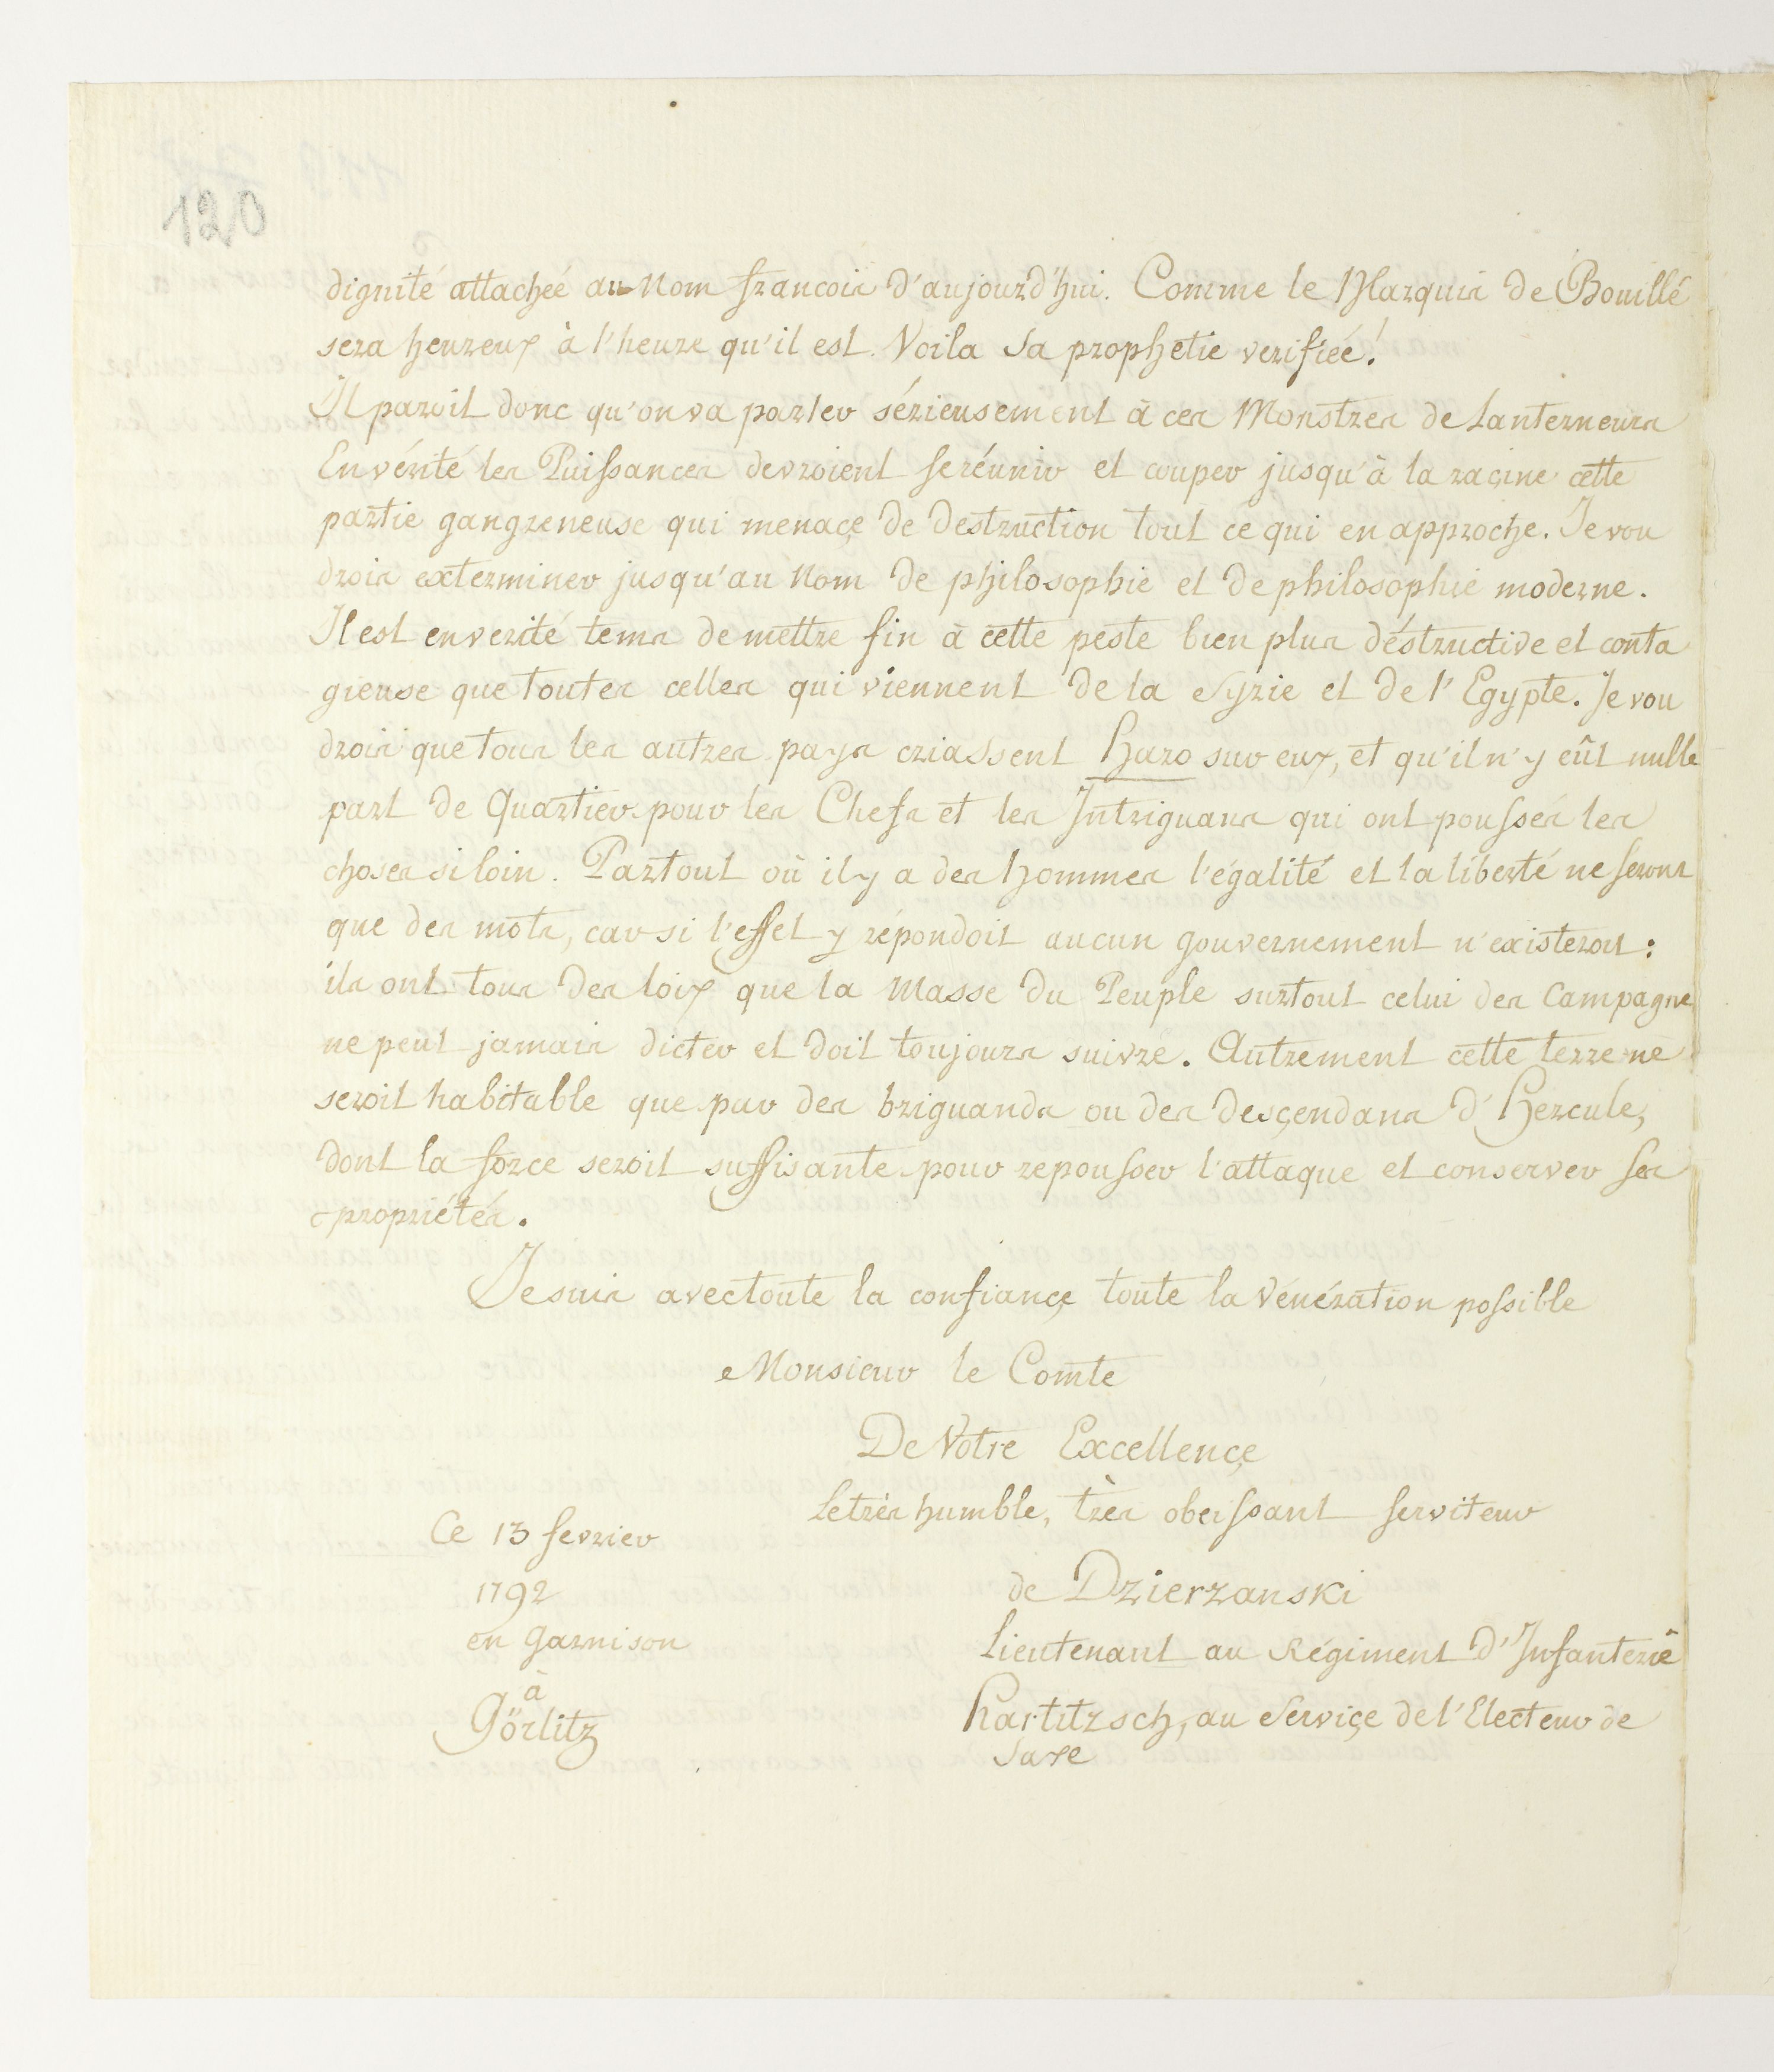 120
dignité attachée au Nom francois d'aujourd'hui. Comme le Marquis de Bouillé
sera heureux à l'heure qu'il est. Voila sa prophetie verifiée!
Il paroit donc qu'on va parler sérieusement à ces Monstres de Lanterneurs
En vérité les Puissances devroient se réunir et couper jusqu'à la raçine cette
partie gangreneuse qui menaçe de destruction tout ce qui en approche. Je vou
drois exterminer jusqu'au Nom de philosophie et de philosophie moderne.
Il est en verité tems de mettre fin à cette peste bien plus déstructive et conta
gieuse que toutes celles qui viennent de la Syrie et de l'Egypte. Je vou
drois que tous les autres pays criassent Haro sur eux, et qu'il n'y eût nulle
part de Quartier pour les Chefs et les Intriguans qui ont poussés les
choses si loin. Partout où il y a des hommes l'égalité et la liberté ne seront
que des mots, car si l'effet y répondoit aucun gouvernement n'existeroit:
ils ont tous des loix que la Masse du Peuple surtout celui des Campagne
ne peut jamais dicter et doit toujours suivre. Autrement cette terre ne
seroit habitable que par des briguands ou des desçendans d'Hercule,
dont la force seroit suffisante pour repousser l'attaque et conserver ses
propriétés.
Je suis avec toute la confiançe toute la vénération possible
Monsieur le Comte
De Votre Excellençe
Le très humble, très obeissant serviteur
Ce 13 fevrier
1792
en Garnison
à
Görlitz
de Dzierzanski
Lieutenant au Régiment d'Infanterie
Hartitzsch, au Serviçe de l'Electeur de
Saxe